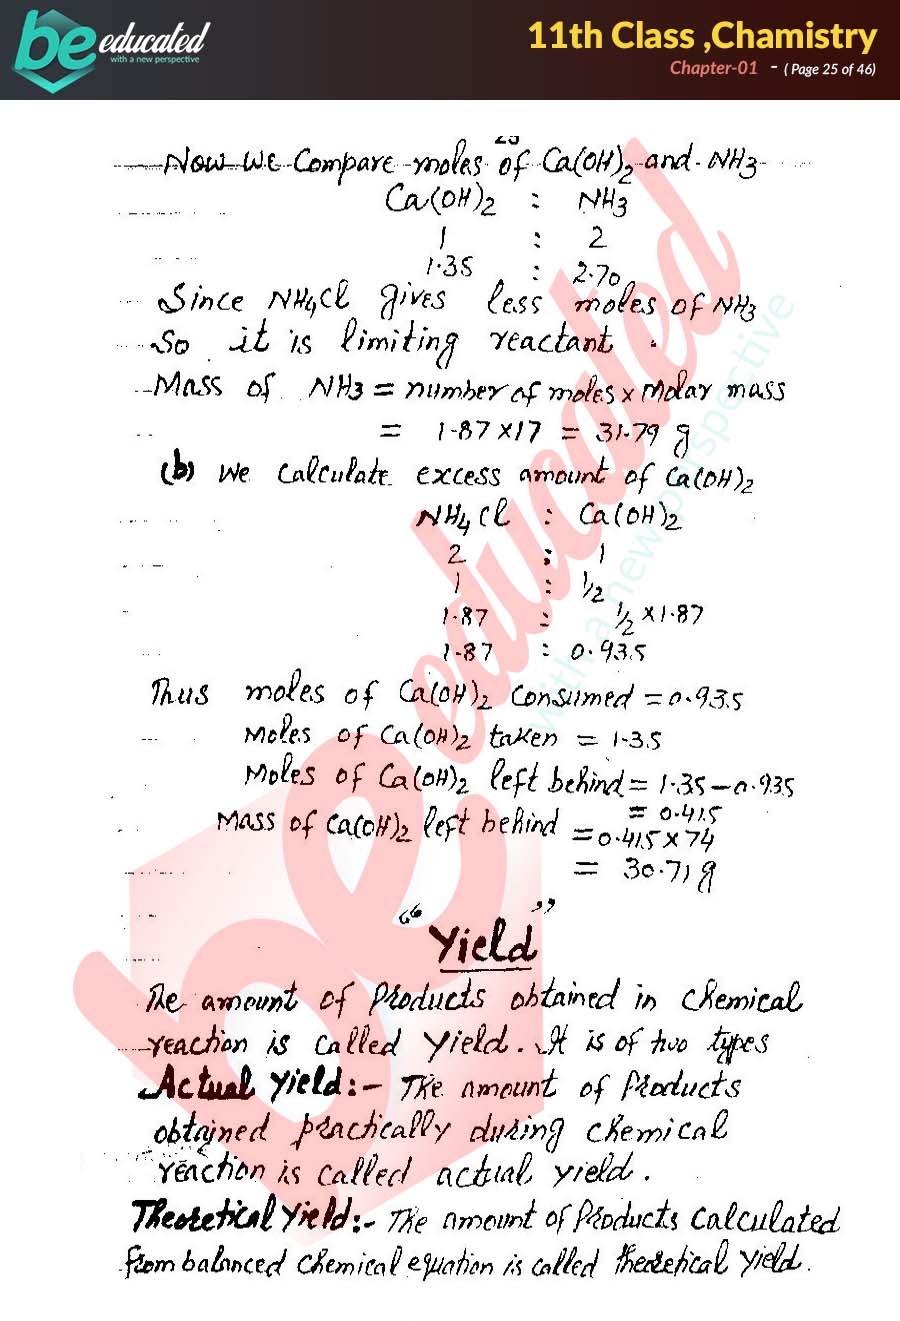 be educated
with a new perspective
11th Class ,Chamistry
Chapter-01 - ( Page 25 of 46)
25
Now we Compare moles of Ca(OH)2 and NH3
Ca(OH)2 : NH3
1 : 2
1.35 : 2.70
Since NH4Cl gives less moles of NH3
So it is limiting reactant .
Mass of NH3 = number of moles x Molar mass
= 1.87 x 17 = 31.79 g
(b) We calculate excess amount of Ca(OH)2
NH4Cl : Ca(OH)2
2 : 1
1 : 1/2
1.87 : 1/2 x 1.87
1.87 : 0.935
Thus moles of Ca(OH)2 consumed = 0.935
Moles of Ca(OH)2 taken = 1.35
Moles of Ca(OH)2 left behind = 1.35 - 0.935
= 0.415
Mass of Ca(OH)2 left behind = 0.415 x 74
= 30.71 g
“Yield”
The amount of Products obtained in chemical
reaction is called Yield. It is of two types
Actual Yield:- The amount of Products
obtained practically during chemical
reaction is called actual yield.
Theoretical Yield:- The amount of Products calculated
from balanced chemical equation is called theoretical yield.
be educated
with a new perspective